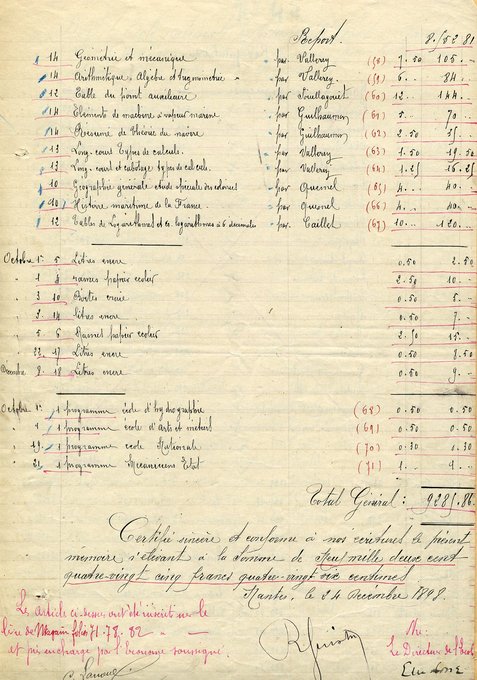 Report. 8.552.81
14 Géométrie et mécanique " par Vallerey (58) 7.50 105. "
14 Arithmétique, Algèbre et trigonométrie " " par Vallerey. (59) 6. " 84. "
12 Table du point auxiliaire " par (60) 12. " 144. "
14 Eléments de machine à vapeur marine " par Guilhaumon (61) 5. " 70. "
14 Résumé de théorie du navire " par Guilhaumon (62) 2.50 35. "
13 Long-court Types de calculs. " par Vallerey (63) 1.50 19.50
13 Long-court et cabotage types de calculs. " par Vallerey (64) 1.25 16.25
10 Géographie générale étude spéciale des colonies " par Quesnel (65) 4. " 40. "
10 Histoire maritime de la France " par Quesnel (66) 4. " 40. "
12 Tables de Logarithmes et Co. logarithmes à 6 décimales " par Caillet (67) 10. " 120. "
Octobre 1er 5 Litres encre 0.50 2.50
" 1 4 rames papier écolier 2.50 10. "
" 3 10 Boîtes craie 0.50 5. "
" 3 14 litres encre 0.50 7. "
" 5 6 Rames papier écolier 2.50 15. "
" 22 17 Litres encre 0.50 8.50
Décembre 2 18 Litres encre 0.50 9. "
Octobre 1er 1 programme école d'hydrographie (68) 0.50 0.50
" 1 1 programme école d'Arts et métiers (69) 0.50 0.50
" 19 1 programme école Nationale (70) 0.30 0.30
" 21 1 programme Mécaniciens Etat (71) 1. "
Total Général : 9285.86
Certifié sincère et conforme à nos écritures le présent
mémoire s'élevant à la somme de Neuf mille deux cent
quatre-vingt cinq francs quatre-vingt six centimes
Nantes, le 24 Décembre 1898.
Les article ci-dessus ont été inscrit sur le
livre de Magasin folios 71. 78. 82 "
et pris en charge par l'économe soussigné.
Vu :
Le Directeur de l'École